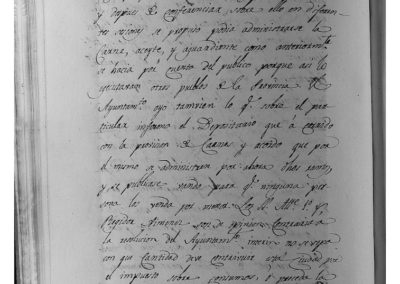 y despues de conferenciar sobre ello en diferen-
tes se propuso podia administrarse la
Carne, aceyte, y aguardiente como anteriormte
se hacia por cuenta del publico porque asi lo
egecutaran otros pueblos de la Provincia. El
Ayuntamto oyó tambien lo qe sobre el par-
ticular informó el Depositario que á
con la provision de Carnes y acordó que por
el mismo se administren por ahora
y se publicase vando para qe ninguna per-
sona las venda por menor. Los SS. Alde 1o y
Regidor Ximenez son de opinion Contraria á
la resolucion del Ayuntamto interin no se sepa
con que Cantidad deve contribuir esta Ciudad por
el impuesto sobre consumos, y la